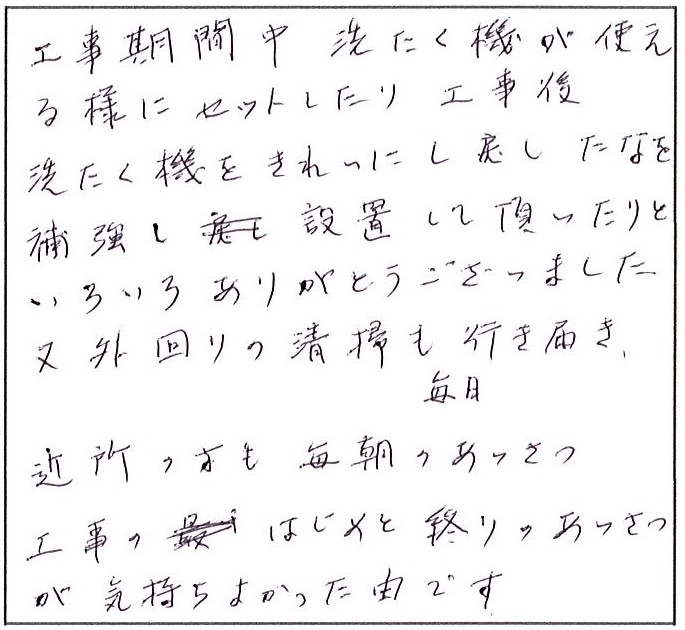 工事期間中 洗たく機が使え
る様にセットしたり 工事後
洗たく機をきれいにし戻し たなを
補強し 設置して頂いたりと
いろいろありがとうございました
又外回りの清掃も行き届き、
毎日
近所の方も 毎朝のあいさつ
工事の はじめと終りのあいさつ
が気持ちよかった由です